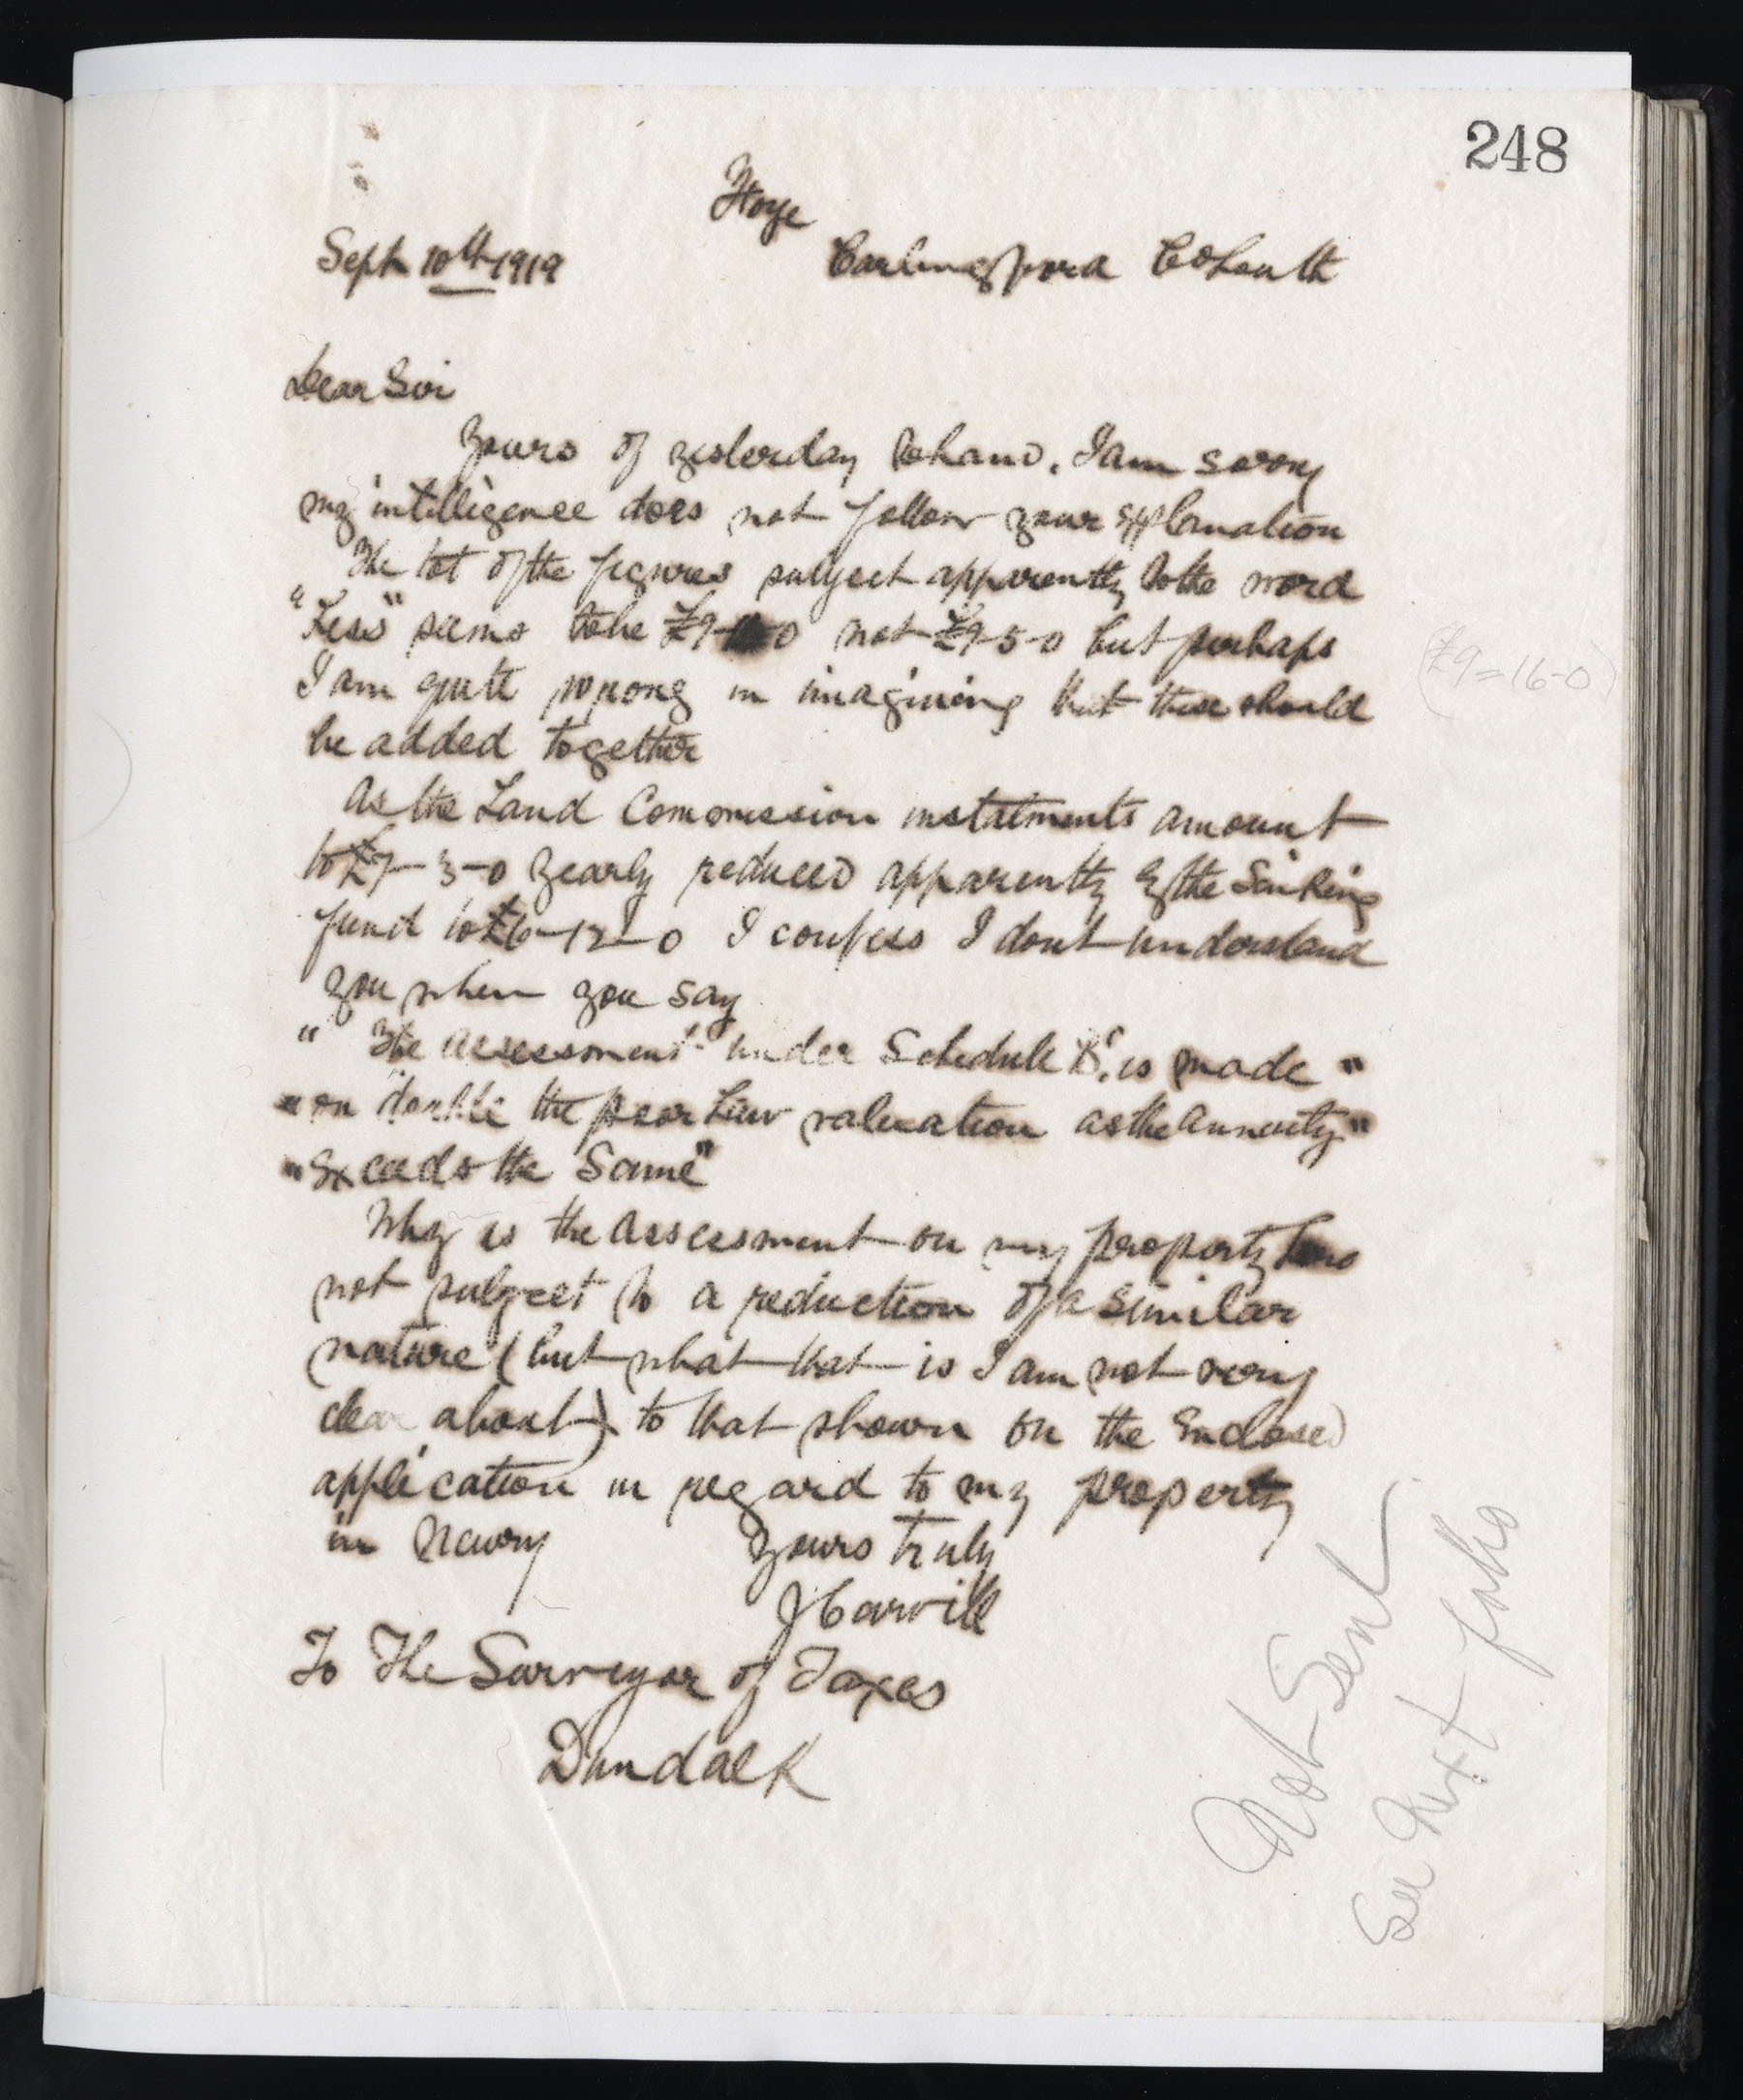 248
Sept 10th 1919
Carlingford Co Louth
Dear Sir
Yours of yesterday to hand. I am sorry
my intelligence does not follow your explanation
The tot of the figures subject apparently to the word
"Less" seems to be £9- -0 not £9-5-0 but perhaps
(£9=16-0)
I am quite wrong in imagining that these should
be added together
As the Land Commission instalments amount
to £7-3-0 yearly reduced apparently by the Sinking
fund to £6-12-0 I confess I dont understand
you when you say
" The assessment under Schedule B. is made "
" on double the poor Law valuation as the annuity "
" Exceeds the Same"
Why is the assessment on my property here
not subject to a reduction of a similar
nature (but what that is I am not very
clear about) to that shown on the Enclosed
application in regard to my property
in Newry Yours truly
J Carvill
To The Surveyor of Taxes
Dundalk
Not Sent
See Next folio